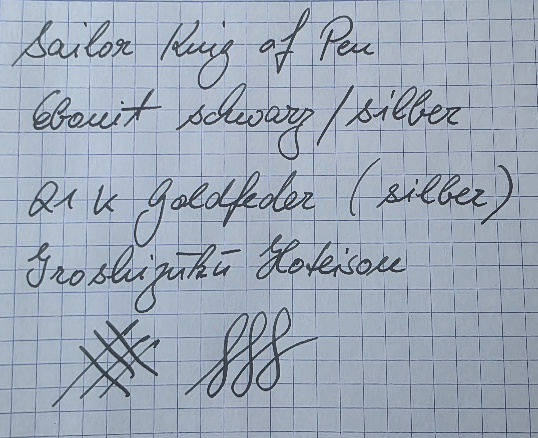 Sailor King of Pen
Ebonit schwarz/silber
21 K Goldfeder (silber)